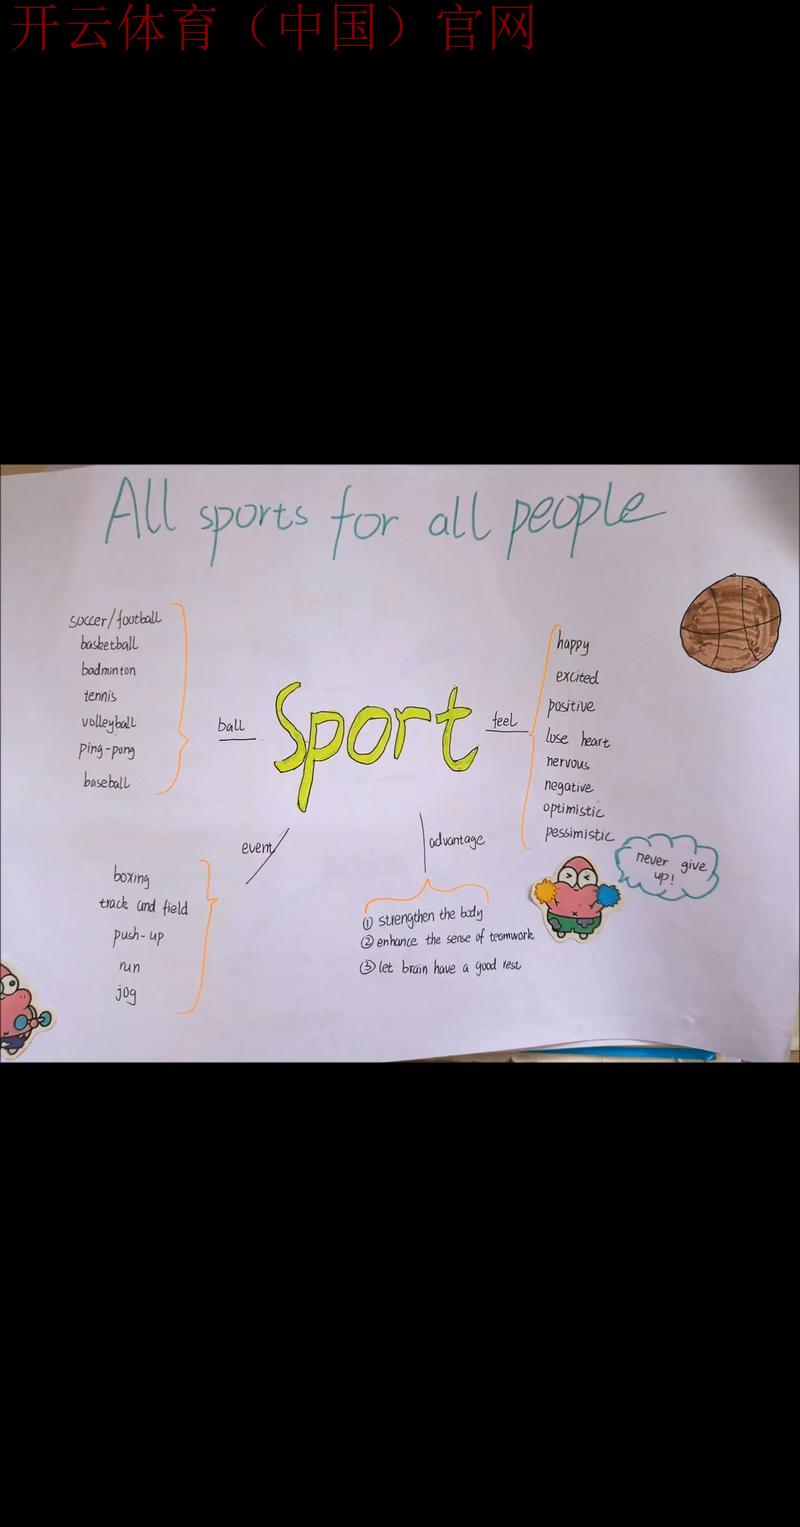 开云体育（中国）官网
All sports for all people
soccer/football
basketball
badminton
tennis
volleyball
ping-pong
baseball
ball
Sport
feel
happy
excited
positive
lose heart
nervous
negative
optimistic
pessimistic
event
boxing
track and field
push-up
run
jog
advantage
① strengthen the body
② enhance the sense of teamwork
③ let brain have a good rest
never give
up!